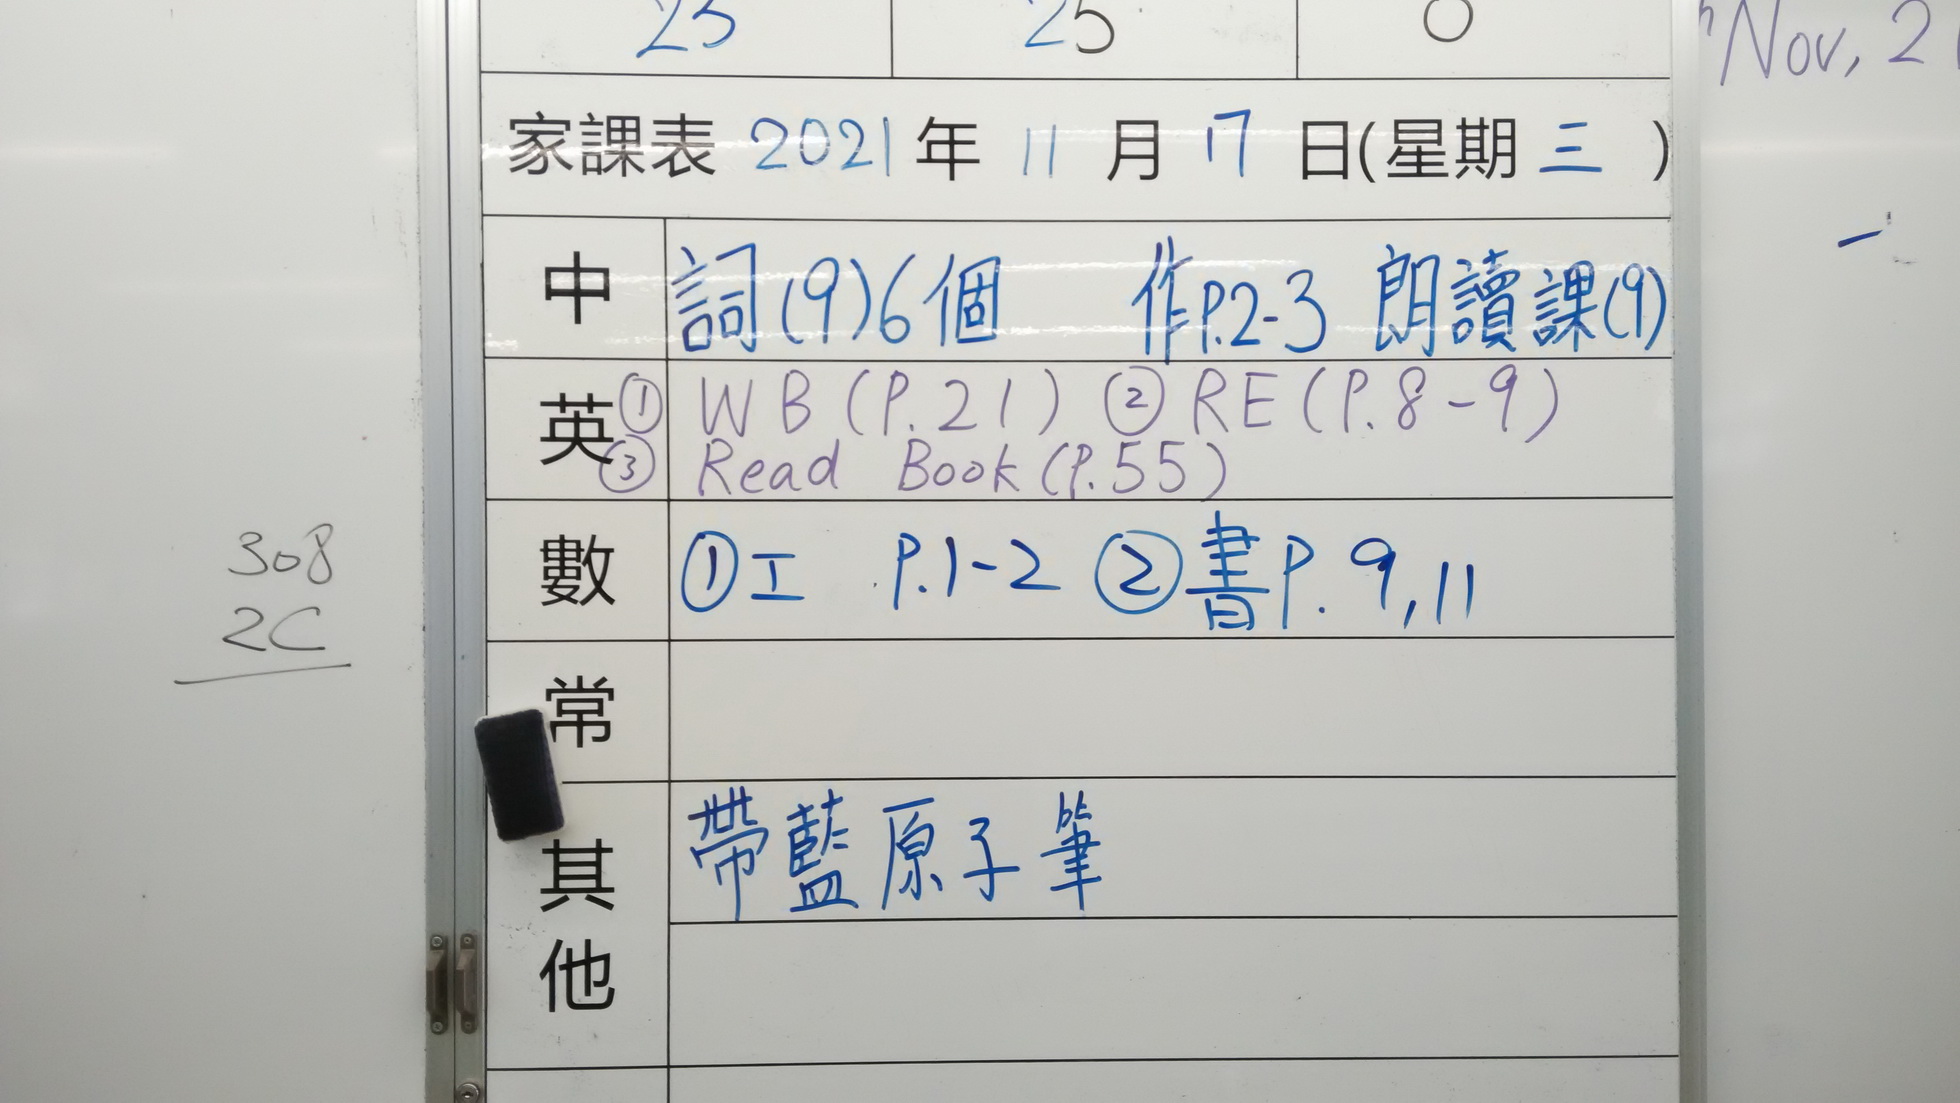 23 25 0
Nov, 2
家課表 2021 年 11 月 17 日(星期 三 )
中 詞(9)6個 作P.2-3 朗讀課(9)
英 ① WB (P.21) ② RE (P.8-9)
③ Read Book (P.55)
數 ①工 P.1-2 ②書P. 9,11
308
2C
常
其他 帶藍原子筆